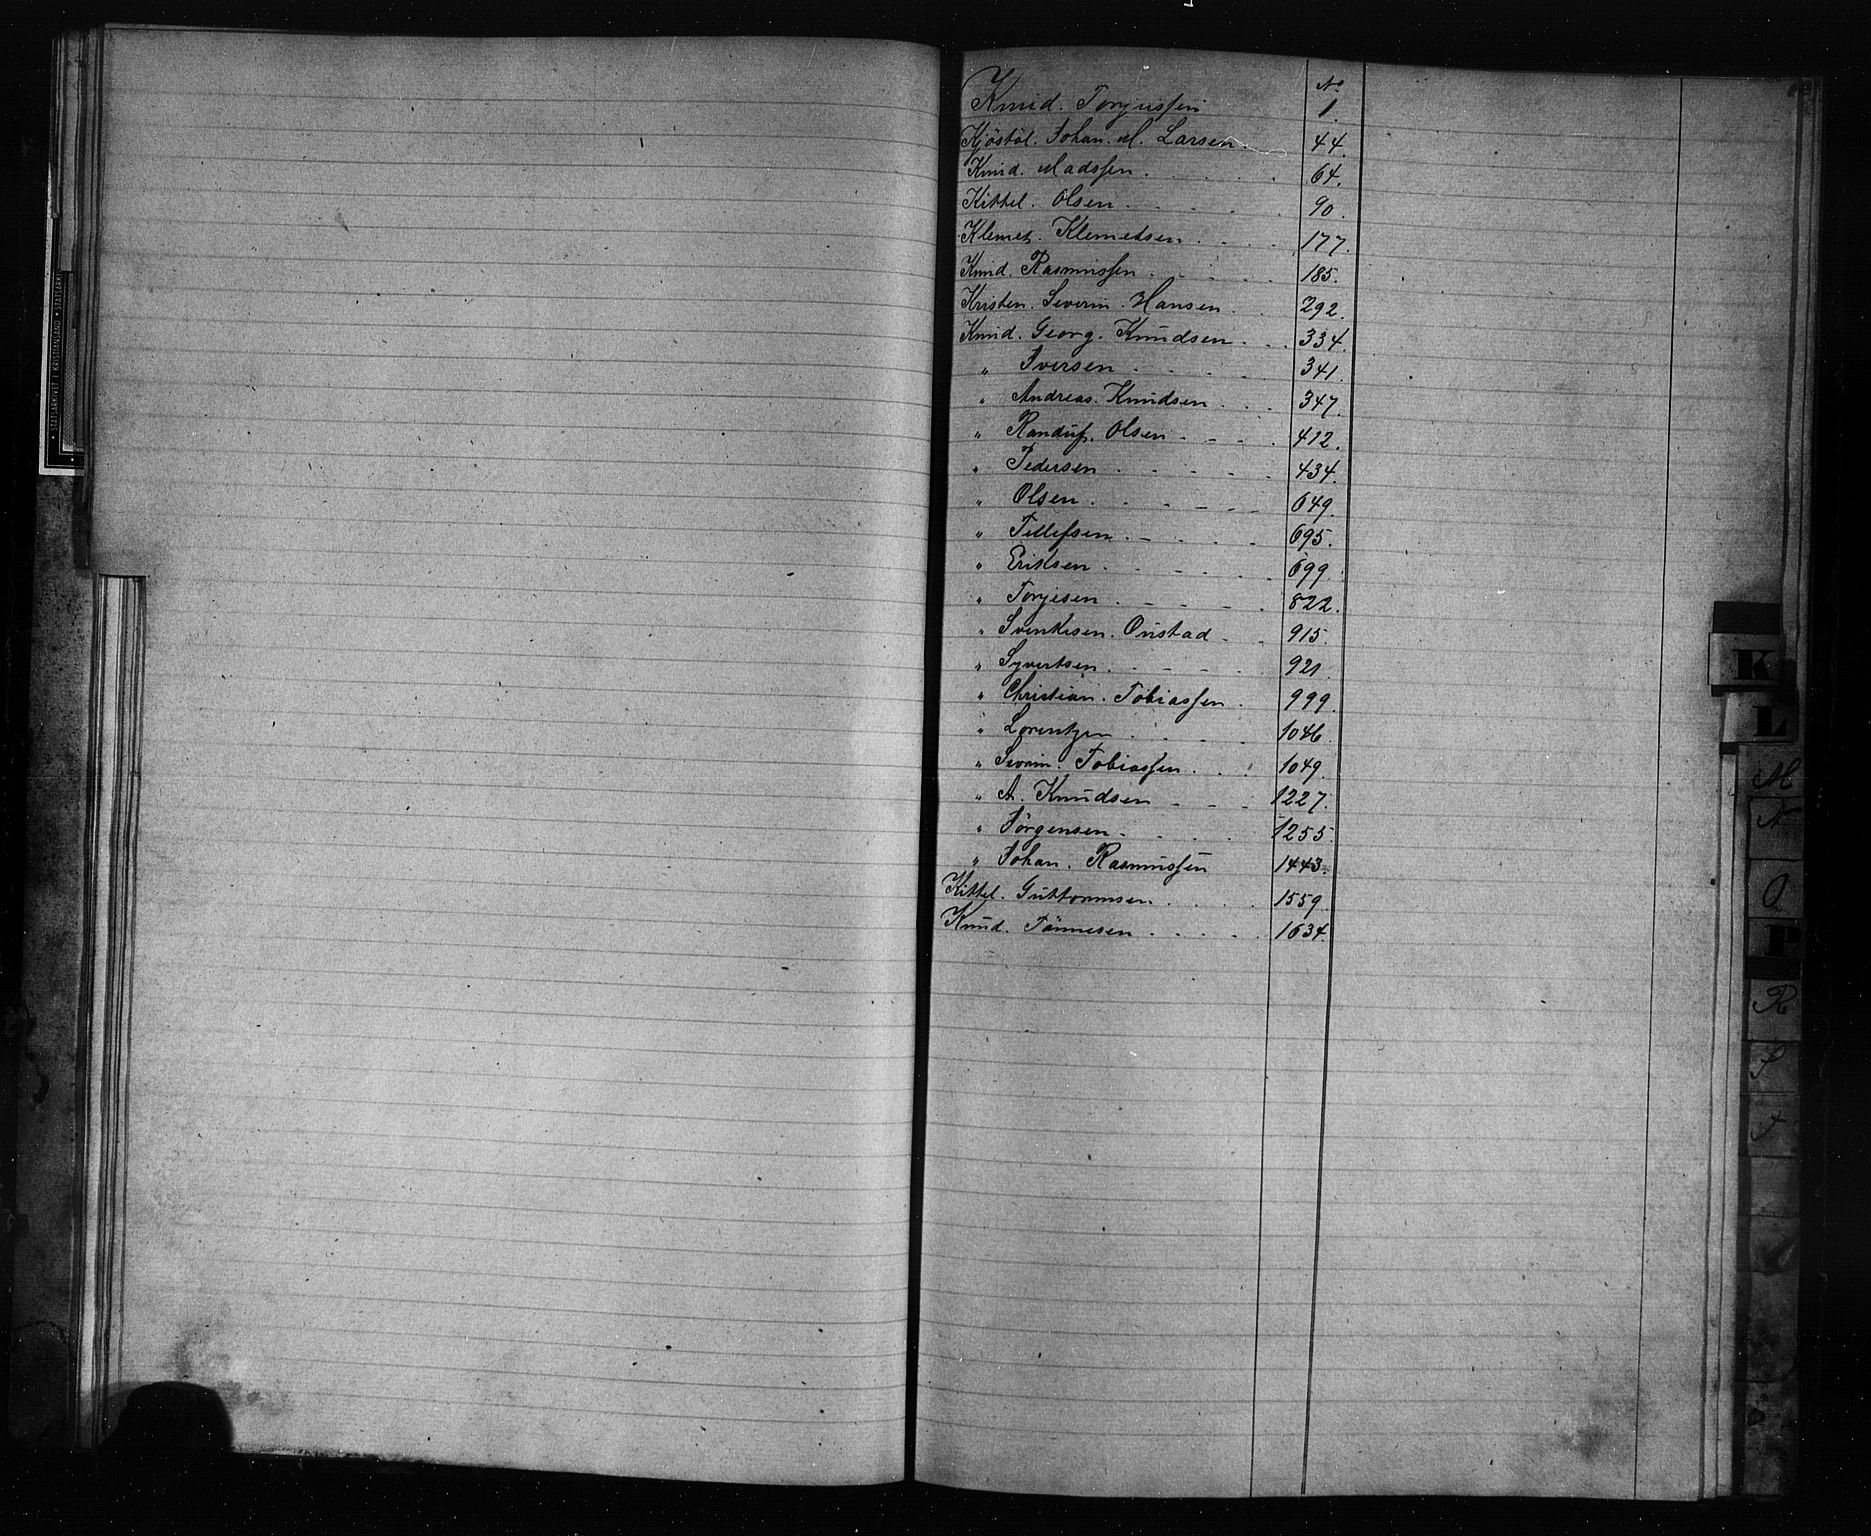 No
Knud. Torjussen 1.
Kjöstöl. Johan. M. Larsen. 44.
Knud. Madssen. 64.
Kittel. Olsen. 90.
Klemet. Klemetsen. 177.
Knud. Rasmussen. 185.
Kristen. Severin. Hansen. 292.
Knud. Georg. Knudsen. 334.
" Iversen. 341.
" Andreas. Knudsen. 347.
" Randulf. Olsen. 412.
" Pedersen. 434.
" Olsen. 649.
" Tellefsen. 695.
" Eriksen. 699.
" Torjesen. 822.
" Svenkesen. Onstad 915.
" Syvertsen. 921.
" Christian. Tobiassen. 999.
" Lorentzen. 1046.
" Severin. Tobiassen. 1049.
" A. Knudsen 1227.
" Jörgensen. 1255.
" Johan. Rasmussen 1443.
Kittel. Guttormsen. 1559.
Knud. Tönnesen. 1634.
STATSARKIVET I KRISTIANSAND • STATSARKI
K
L
M
N
O
P
R
S
T